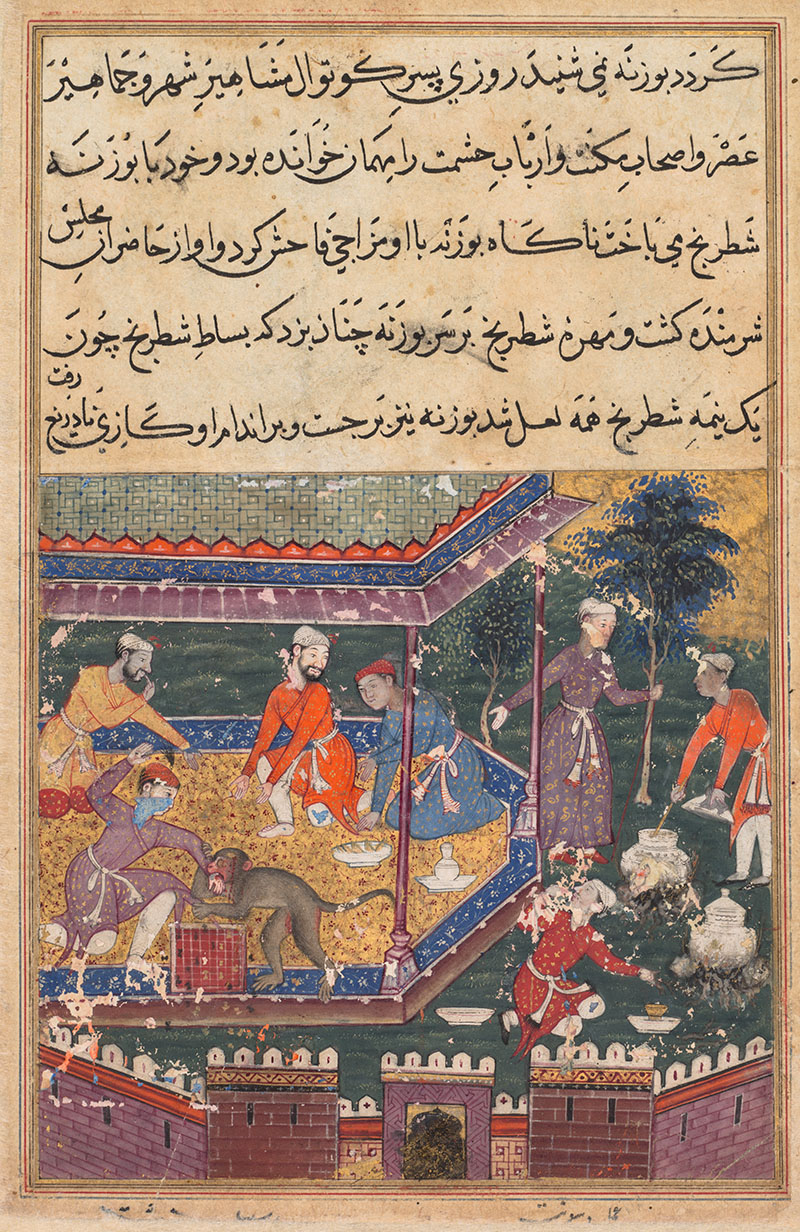 کردد بوزنه نمی شنید روزی پسر کوتوال مشاهیر شهر و جماهیر
عصر و اصحاب مکنت و ارباب حشمت را مهمان خوانده بود و خود با بوزنه
شطرنج می باخت ناکاه بوزنه با او مزاجی فاحش کرد و او از حاضران مجلس
شرمنده کشت و مهره شطرنج بر سر بوزنه چنان بزد که بساط شطرنج چون
یک نیمه شطرنج همه لعل شد بوزنه نیز برجست و بر اندام او کازی
رفت